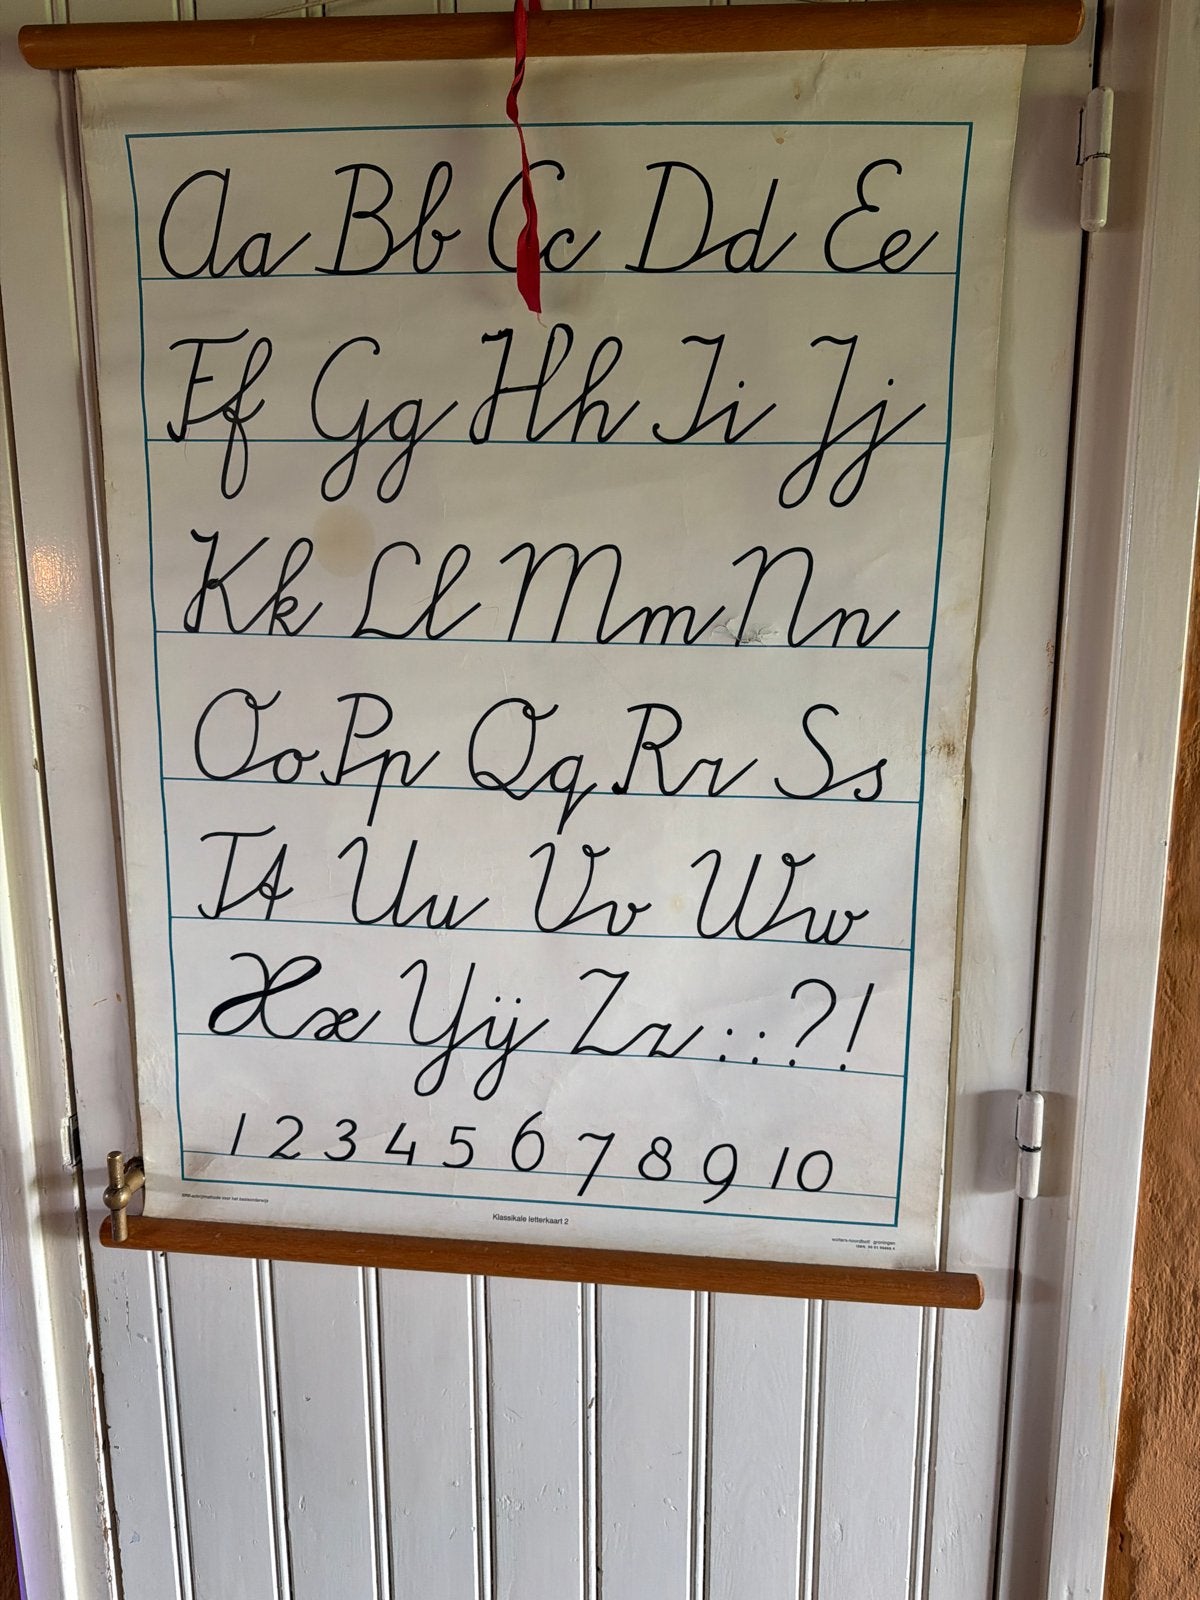 Aa Bb Cc Dd Ee
Ff Gg Hh Ii Jj
Kk Ll Mm Nn
Oo Pp Qq Rr Ss
Tt Uu Vv Ww
Xx Yÿ Zz . : ? !
1 2 3 4 5 6 7 8 9 10
schrijfmethode voor het basisonderwijs
Klassikale letterkaart 2
wolters-noordhoff groningen